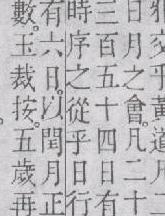 交乎黃道
日月之會。凡二十
三百五十四日有
時序之從乎日行
有六日。以閏月正
數。玉裁按。五歲再